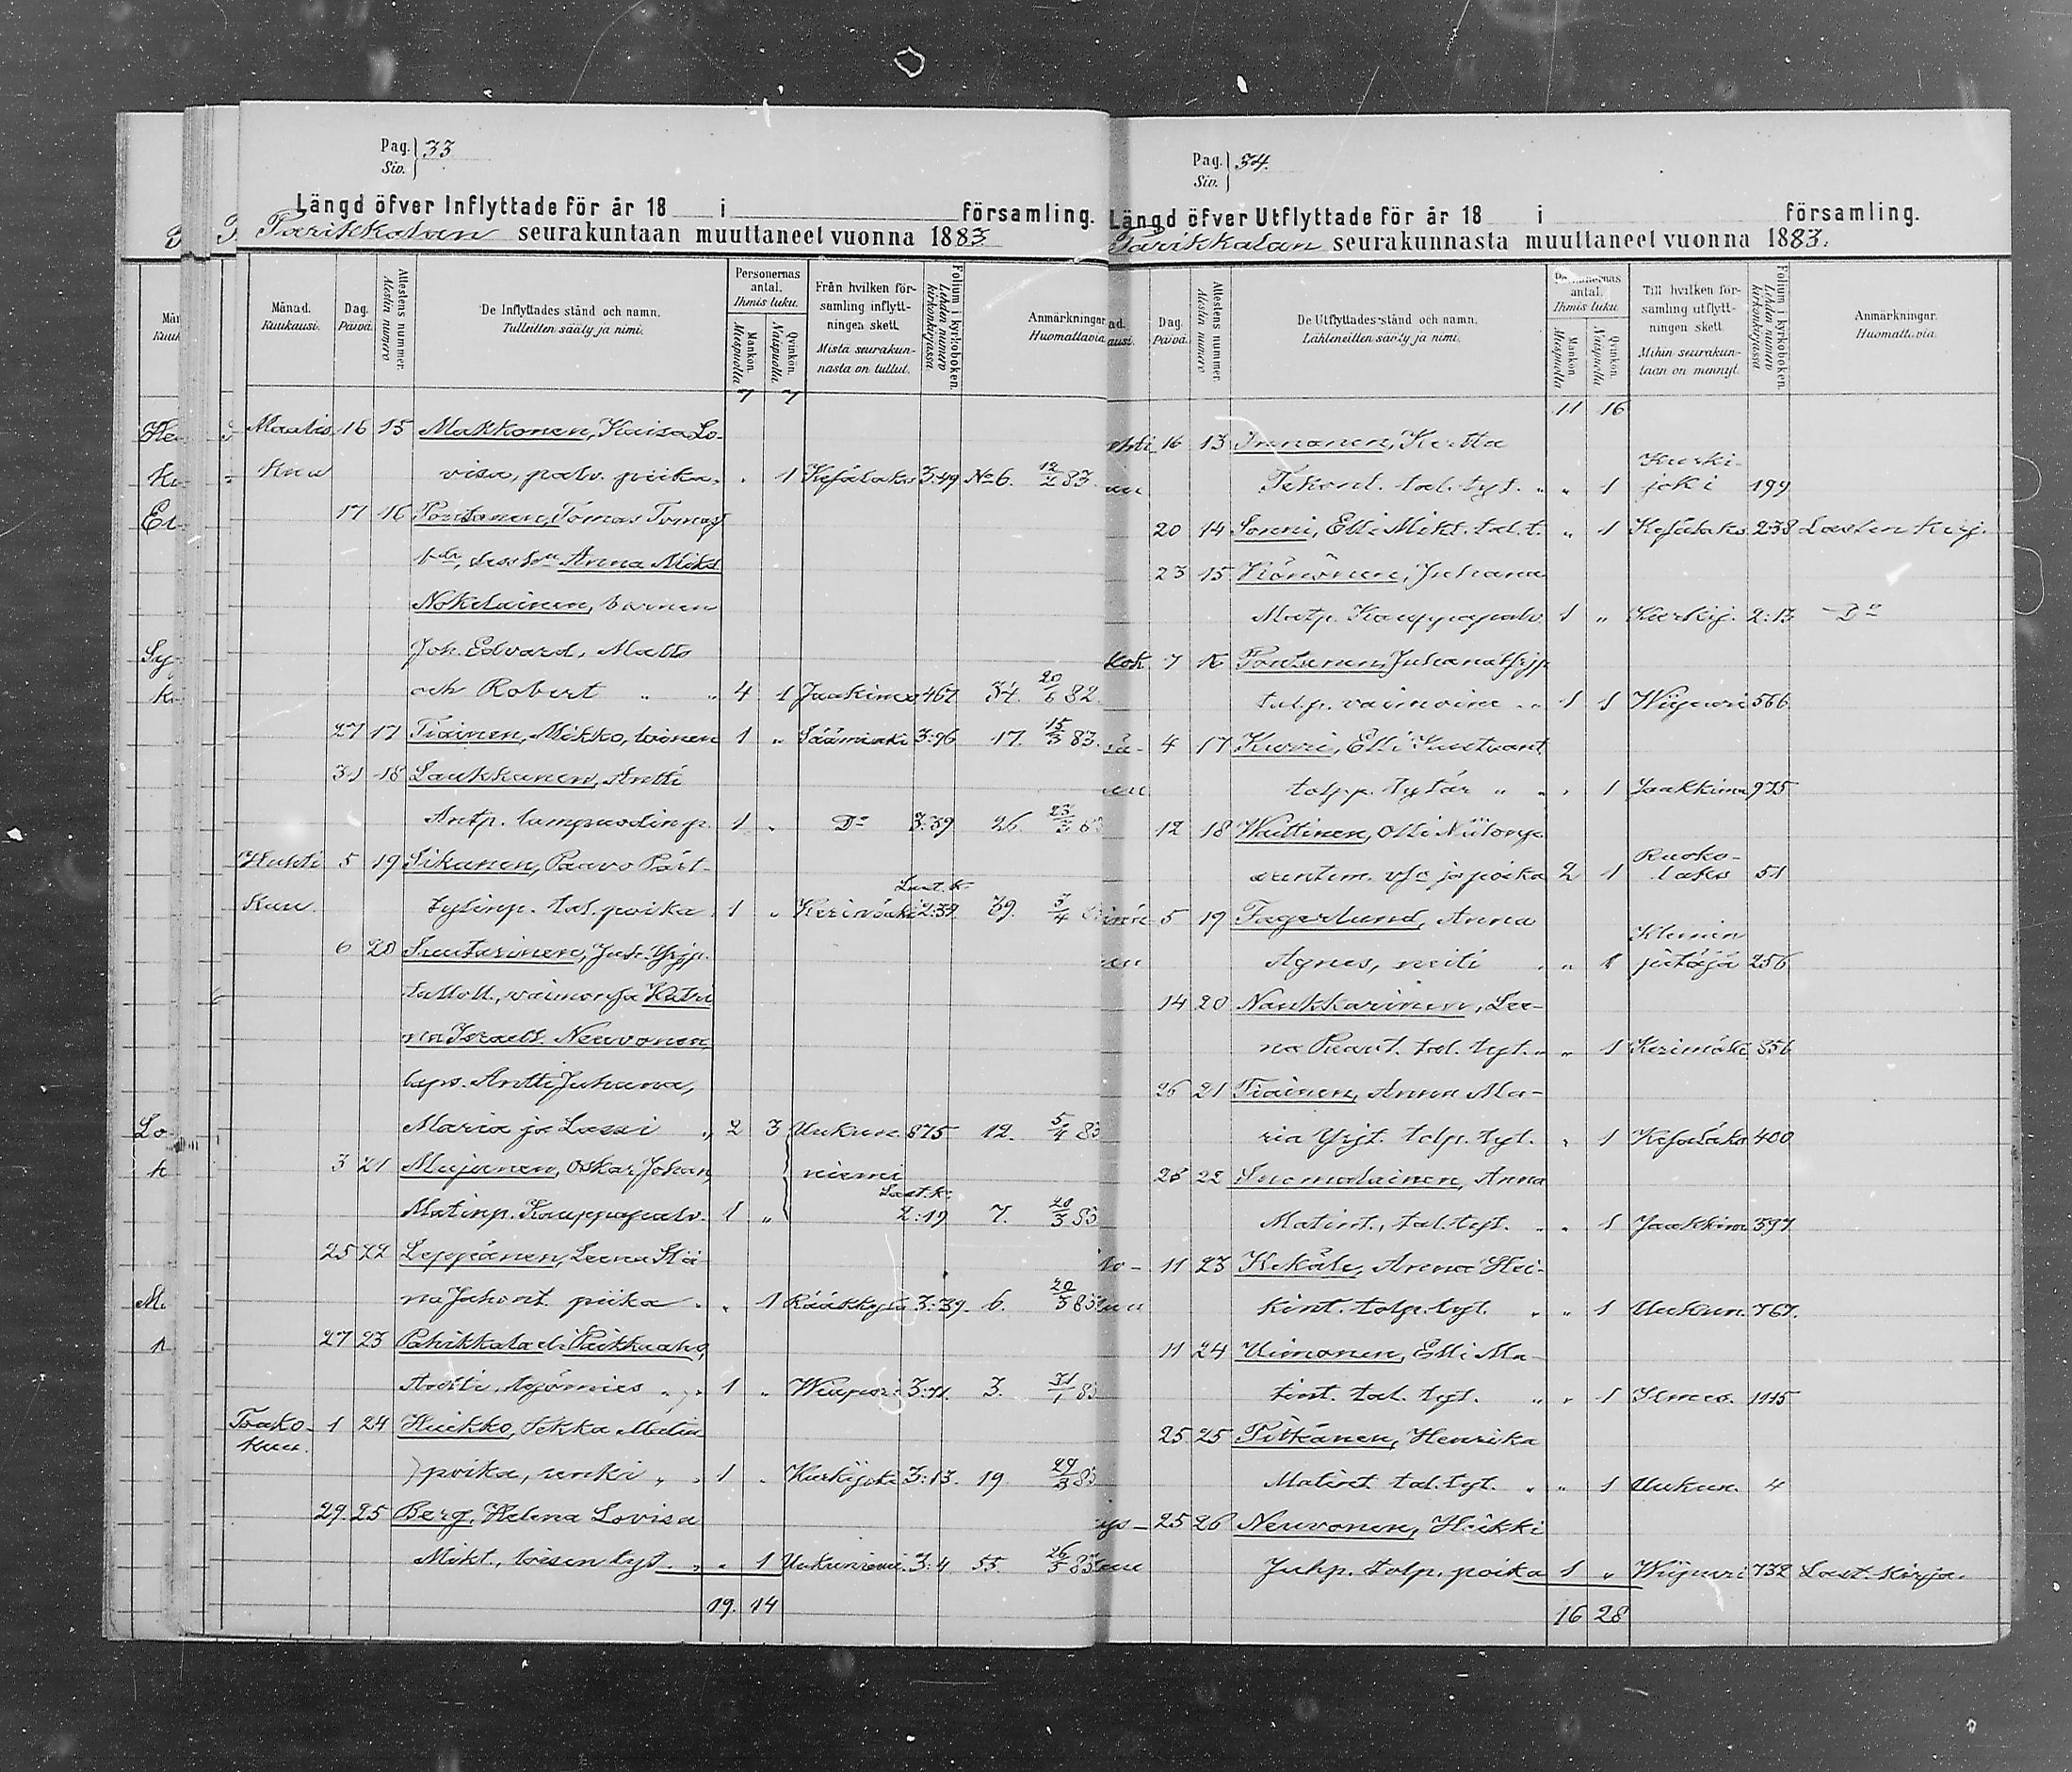 Pag. 33
Siv.
Längd öfver Inflyttade för år 18 i församling.
Parikkalan seurakuntaan muuttaneet vuonna 1883
Månad. Kuukausi. Dag. Päivä. Attestens nummer. Alestin numero De Inflyttades stånd och namn. Tulleitten sääty ja nimi. Personernas antal. Ihmis luku. Mankön. Miespuolia Qvinkön. Naispuolia Från hvilken församling inflyttningen skett. Mistä seurakunnasta on tullut. Folium i kyrkoboken. Lehden numero kirkonkirjassa Anmärkningar. Huomattavia.
7 7
Maalis 16 15 Makkonen, Kaisa Lo-
kuu visa, palv. piika " 1 Kesälaks 3:49 No 6. 12/2 83.
17 16 Pontanen, Tomas Tomas
Anna Miks
Nokelainen, barnen
Joh. Edvard, Matts
och Robert " " 4 1 Jaakima 467 34. 20/6 82.
27 17 Tiainen, Mikko, loinen 1 " Säämiski 3:96 17. 15/3 83.
31 18 Laukkanen, Antti
Antp. lampuodin p. 1 " Do 3:39 26. 23/3 83
Huhti 5 19 Sikanen, Paavo Pärt-
Last. k.
kuu. tylinp. tal. poika 1 " Kerimäki 2:39 39. 3/4 83
6 20 Suutarinen, Juh. Yrjp.
talloll., vaimonsa Katri
na Israelt. Neuvonen
laps. Antti Juhana,
Maria ja Lassi " 2 3 Uukun 875 12. 5/4 83
3 21 Mujunen, Oskar Johan niemi
Last. k.
Matinp. Kauppapalv. 1 " 2:19 7. 20/3 83
25 22 Leppänen, Leena Stii-
na Juhont. piika " " 1 Rääkkylä 3:39. 6. 20/3 83
27 23 Pahikkala eli Paikkaaho,
Antti, työmies " " 1 " Wiipuri 3:71. 3. 31/1 83
Touko- 1 24 Huikko, Pekka Matin
kuu.
poika, renki " " 1 " Kurkijoki 3:13. 19. 29/3 83
29. 25 Berg, Helena Lovisa
Mikt., loisen tyt. " " 1 Uukuniemi. 3:4 55. 26/5 83
19. 14
Pag. 34.
Siv.
Längd öfver Utflyttade för år 18 i församling.
Parikkalan seurakunnasta muuttaneet vuonna 1883.
Dag. Päivä. Attestens nummer. Alestin numero De Utflyttades stånd och namn. Lähteneitten sääty ja nimi. Personernas antal. Ihmis luku. Mankön. Miespuolia Qvinkön. Naispuolia Till hvilken församling utflyttningen skett. Mihin seurakuntaan on mennyt. Folium i kyrkoboken. Lehden numero kirkonkirjassa Anmärkningar. Huomattavia.
11 16
16 13 Innanen, Kertta
Kurki-
tal. tyt. " " 1 joki 199
20 14 Sonni, Elli Mikt. tal. t. " 1 Kesälaks 2:38 Lasten kirj.
23 15 Kiönönen, Juhana
Matp. Kauppapalv. 1 " Kurkij. 2:13 Do
7 16 Pontinen, Juhana Yrjp
tal. p. vaimoine " " 1 1 Wiipuri 566
4 17 Kurri, Elli Kustaant
talp. p. tytär " " " 1 Jaakkima 975
12 18 Wuttinen, Olli
Ruoko-
ja poika 2 1 laks 51
5 19 Fagerlund, Anna
Agnes, neiti " " 1 256
14 20 Naukkarinen, Lee-
na Paavt. tal. tyt. " " 1 Kerimäki 856
26 21 Tiainen, Anna Ma-
ria Yrjt. talp. tyt. " 1 Kesälaks 400
26 22 Suomalainen, Anna
Matint., tal. tyt. " " 1 Jaakkima 397
11 23 Kekäle, Anna Hei-
kint. talp. tyt. " " 1 Uukun. 767.
11 24 Uimonen, Elli Ma-
tint. tal. tyt. " " 1 Ilmes. 1115
25 25 Pitkänen, Henrika
Matint tal. tyt. " " 1 Uukun. 4
25 26 Neuvonen, Heikki
Juhp. talp. poika 1 " Wiipuri 732 Last. kirja.
16 28